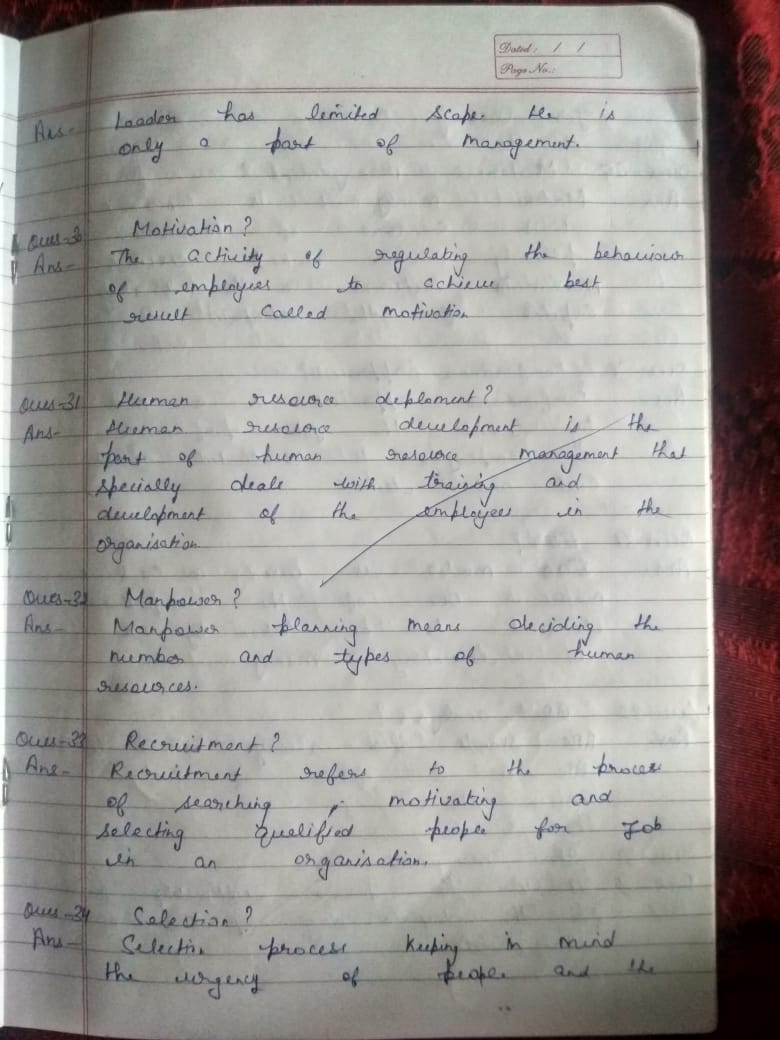 Dated: / /
Page No.:
Ans- Leader has limited scope. He is
only a part of management.
Ques-30 Motivation?
Ans- The activity of regulating the behaviour
of employees to achieve best
result called motivation
Ques-31 Human resource deploment?
Ans- Human resource development is the
part of human resource management that
specially deals with training and
development of the employees in the
organisation.
Ques-32 Manpower?
Ans- Manpower planning means deciding the
number and types of human
resources.
Ques-33 Recruitment?
Ans- Recruitment refers to the process
of searching, motivating and
selecting qualified people for Job
in an organisation.
Ques-34 Selection?
Ans- Selection process keeping in mind
the urgency of people and the